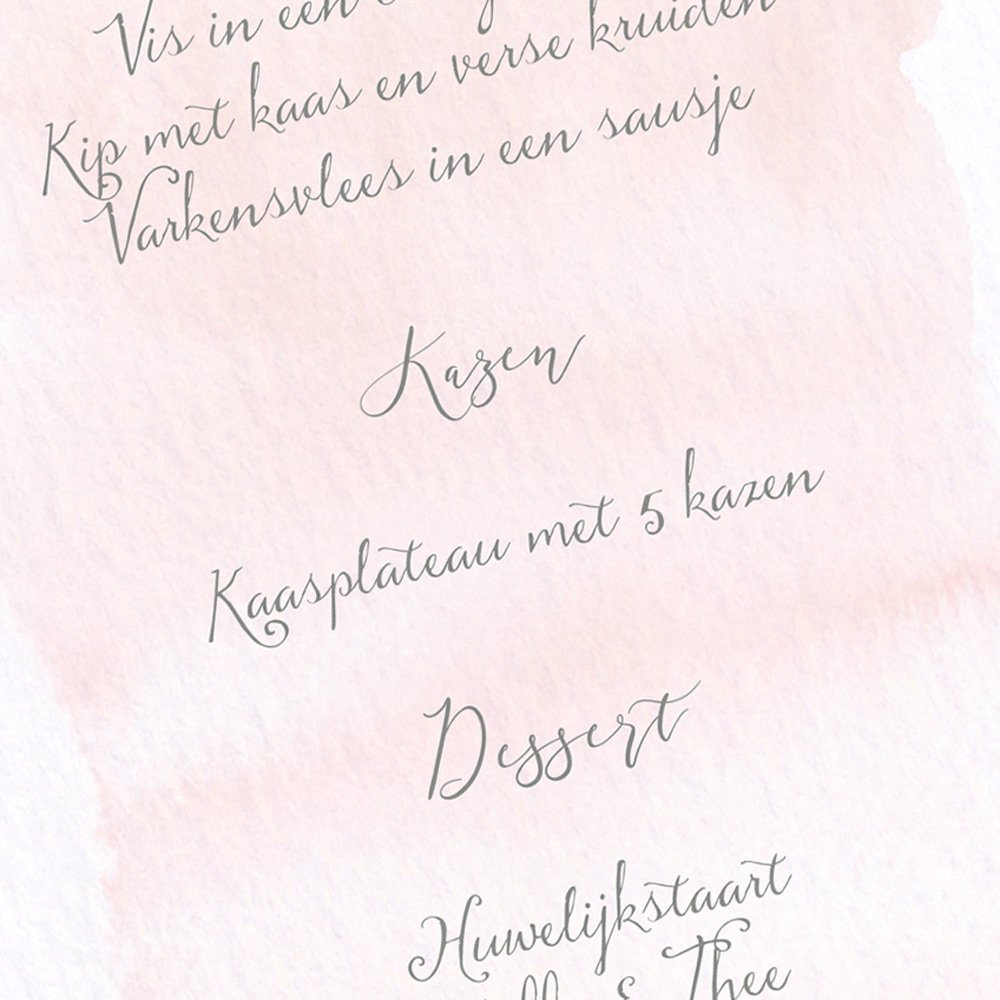 Vis in een
Kip met kaas en verse kruiden
Varkensvlees in een sausje
Kazen
Kaasplateau met 5 kazen
Dessert
Huwelijkstaart
& Thee